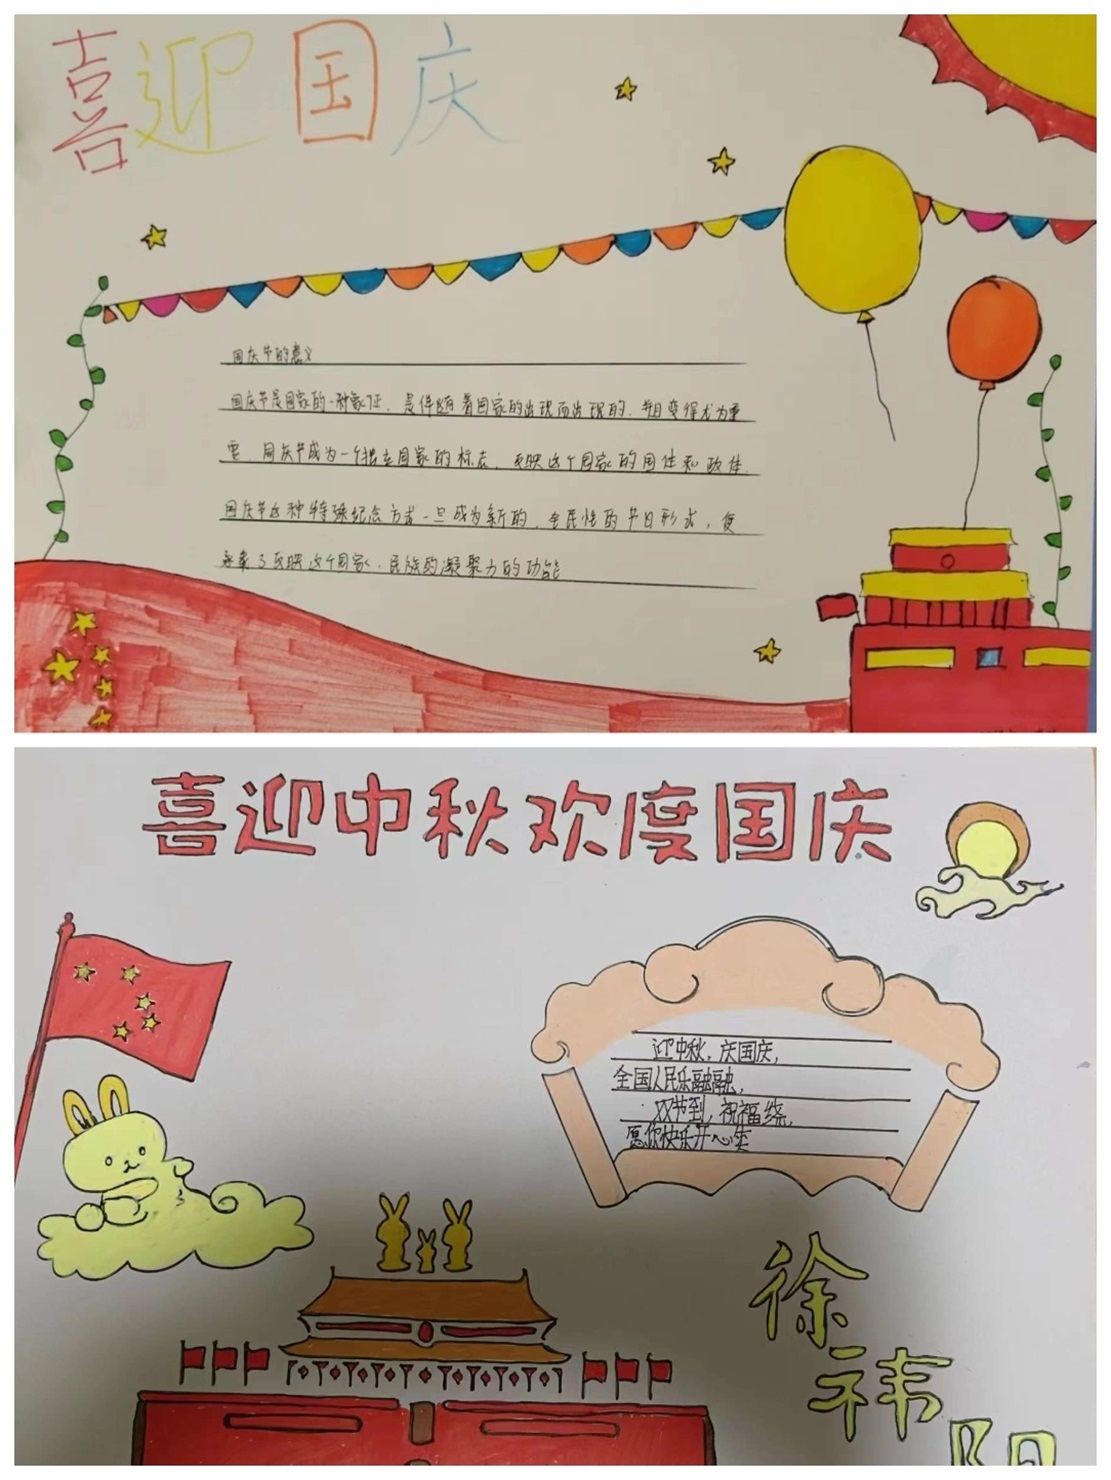 喜迎国庆
国庆节的意义
国庆节是国家的一种象征，是伴随着国家的出现而出现的，并且变得尤为重
要，国庆节成为一个独立国家的标志，反映这个国家的国体和政体．
国庆节这种特殊纪念方式一旦成为新的．全民性的节日形式，便
承载了反映这个国家．民族的凝聚力的功能
喜迎中秋欢度国庆
迎中秋，庆国庆，
全国人民乐融融，
双节到，祝福绕，
愿你快乐开心笑
徐
祎
阳